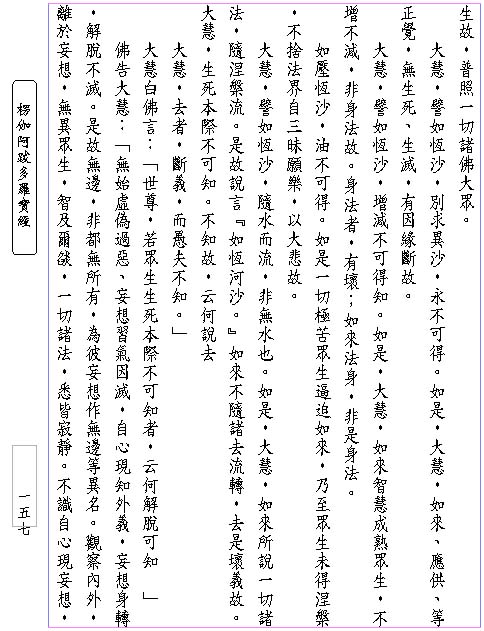 生故，普照一切諸佛大眾。
大慧，譬如恆沙，別求異沙，永不可得。如是，大慧，如來、應供、等
正覺，無生死、生滅，有因緣斷故。
大慧，譬如恆沙，增減不可得知。如是，大慧，如來智慧成熟眾生，不
增不減，非身法故。身法者，有壞；如來法身，非是身法。
如壓恆沙，油不可得。如是一切極苦眾生逼迫如來，乃至眾生未得涅槃
，不捨法界自三昧願樂，以大悲故。
大慧，譬如恆沙，隨水而流，非無水也。如是，大慧，如來所說一切諸
法，隨涅槃流。是故說言『如恆河沙。』如來不隨諸去流轉，去是壞義故。
大慧，生死本際不可知。不知故，云何說去
大慧，去者，斷義，而愚夫不知。」
大慧白佛言：「世尊，若眾生生死本際不可知者，云何解脫可知　」
佛告大慧：「無始虛偽過惡、妄想習氣因滅，自心現知外義，妄想身轉
，解脫不滅。是故無邊，非都無所有，為彼妄想作無邊等異名。觀察內外，
離於妄想，無異眾生，智及爾燄，一切諸法，悉皆寂靜。不識自心現妄想，
楞伽阿跋多羅寶經
一五七